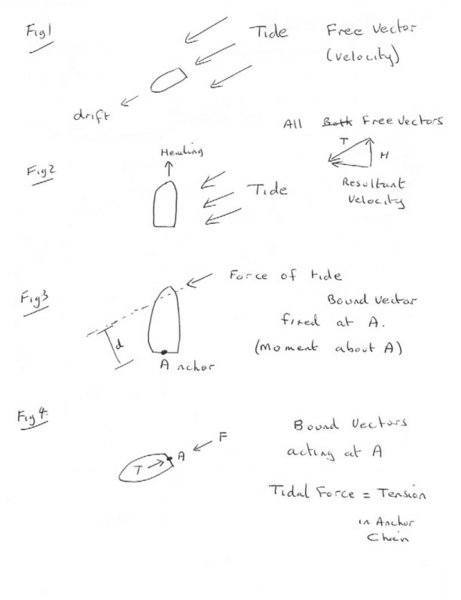 Fig1
Tide
Free Vector
(Velocity)
drift
All Both Free Vectors
T
H
Resultant
Velocity
Fig2
Heading
Tide
Fig3
Force of tide
Bound Vector
fixed at A.
(Moment about A)
d
A nchor
Fig4
T
A
F
Bound Vectors
acting at A
Tidal Force = Tension
in Anchor
Chain